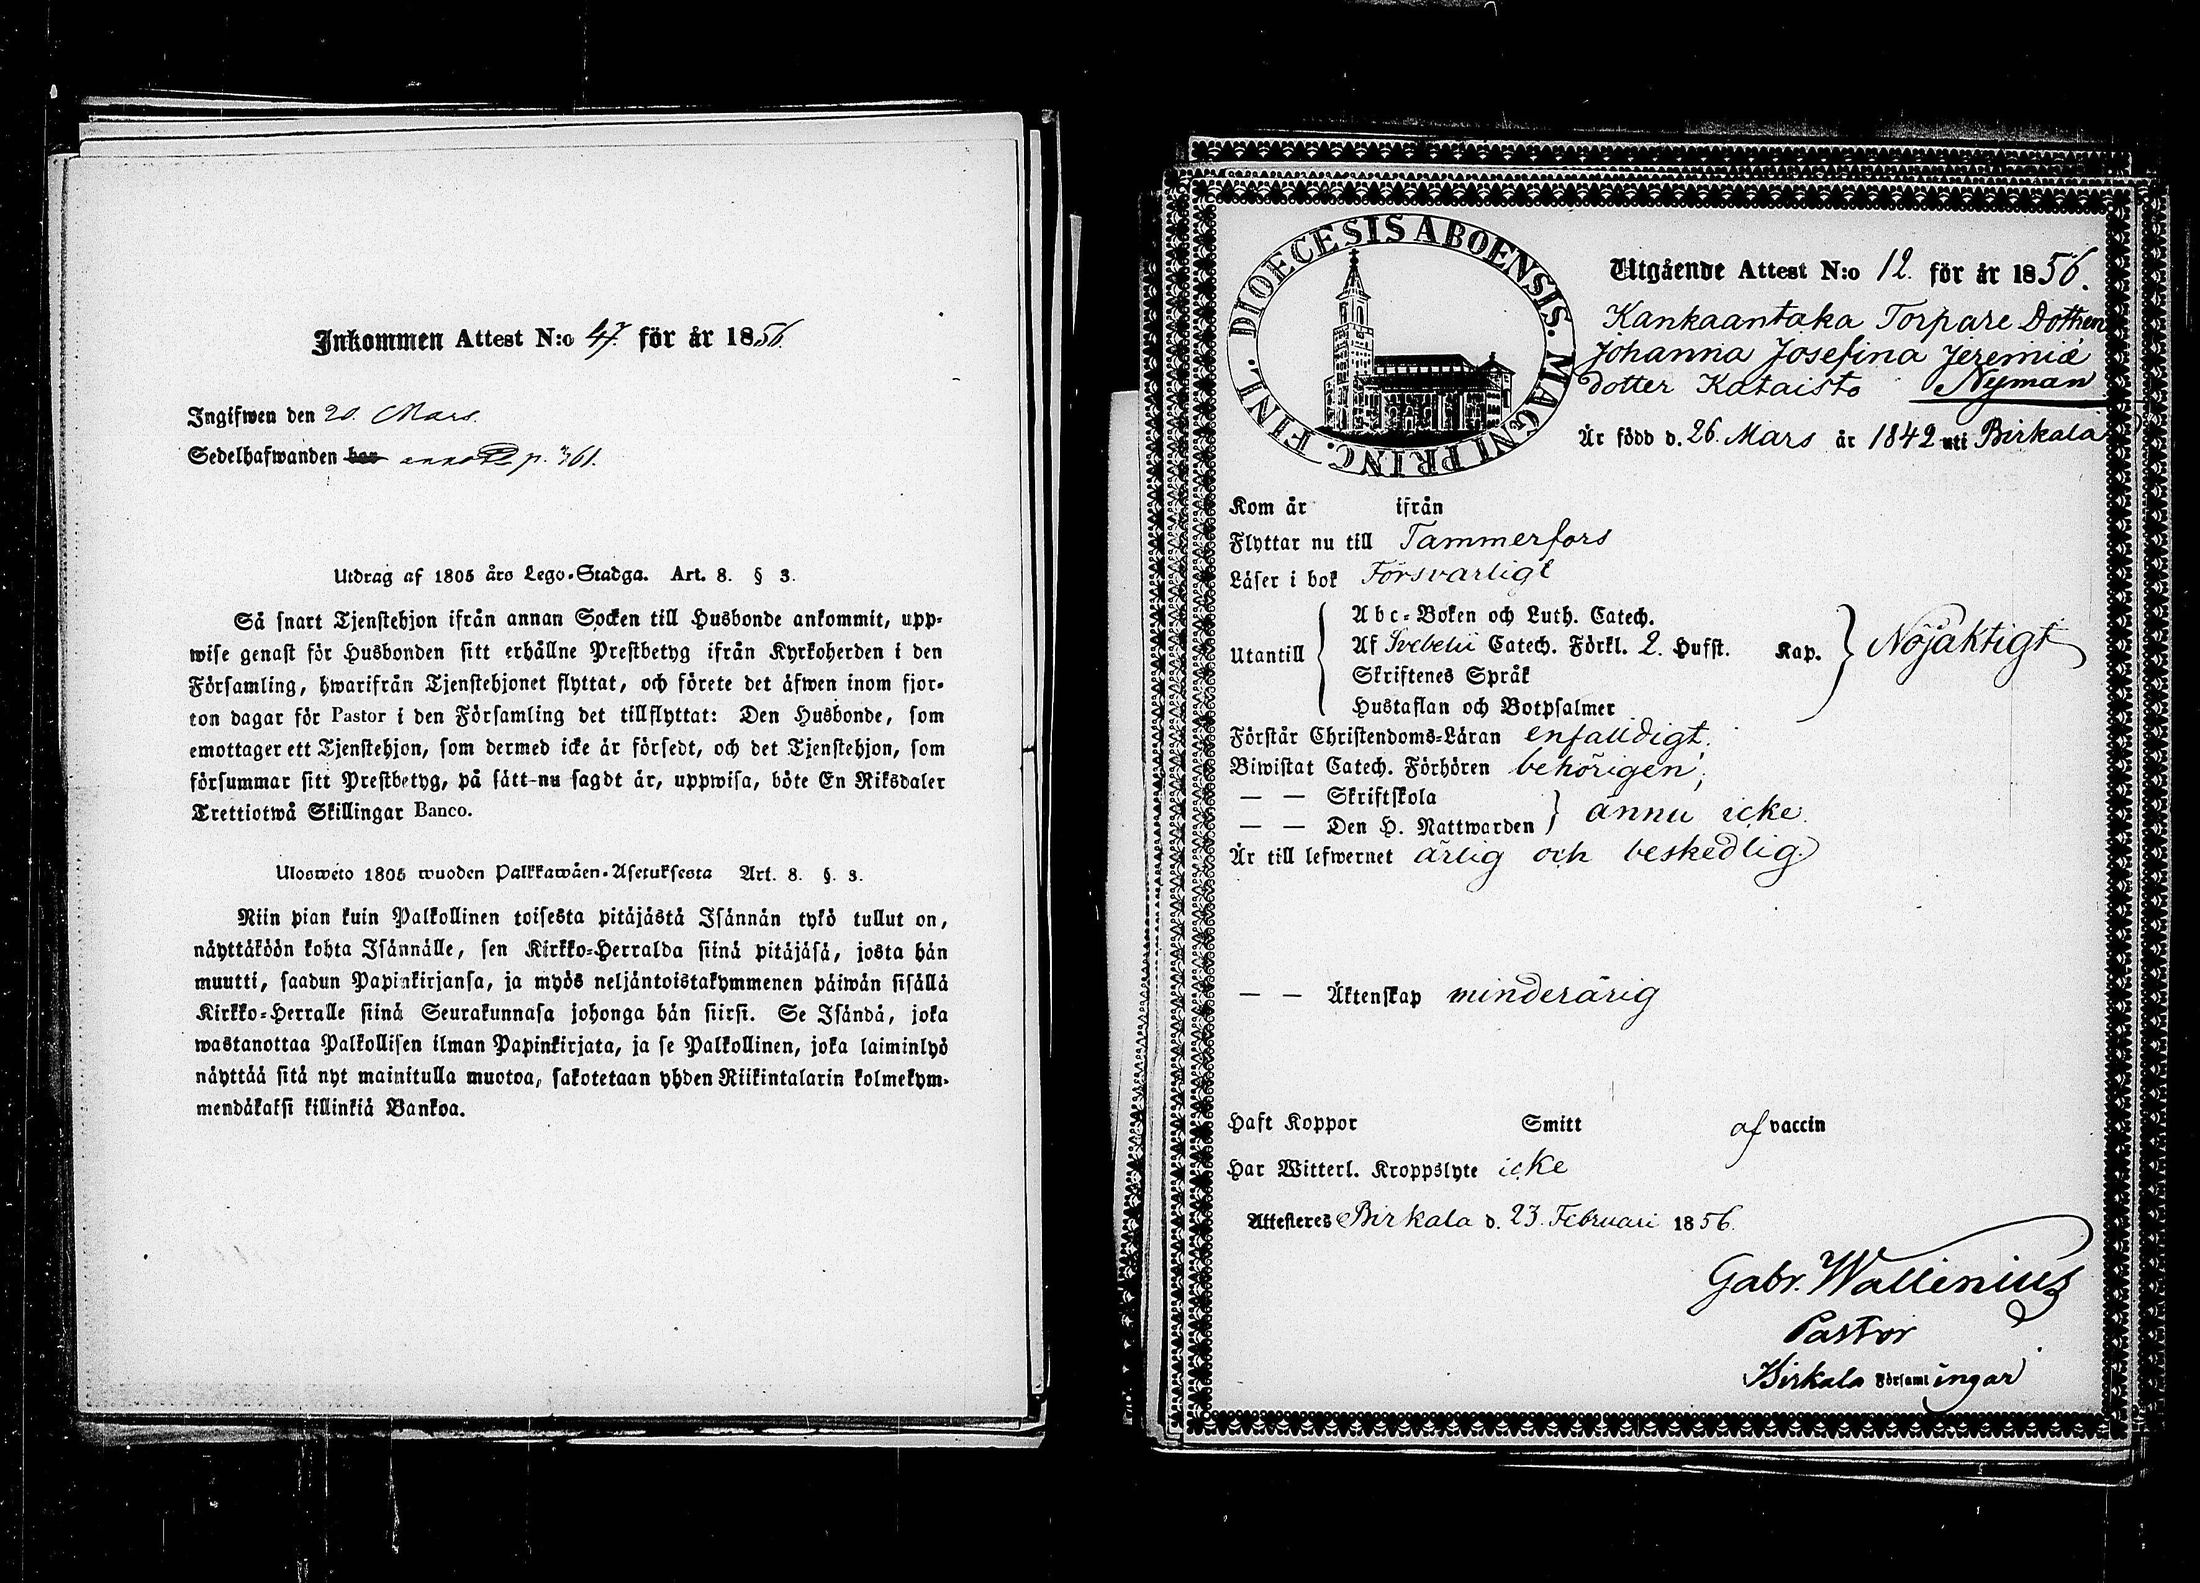 Inkommen Attest N:o 47. för år 1856.
Ingifwen den 20. Mars.
Sedelhafwanden bor p. 361.
Utdrag af 1805 års Lego-Stadga. Art. 8. § 3.
Så snart Tjenstehjon ifrån annan Socken till Husbonde ankommit, upp-
wise genast för Husbonden sitt erhållne Prestbetyg ifrån Kyrkoherden i den
Församling, hwarifrån Tjenstehjonet flyttat, och förete det äfwen inom fjor-
ton dagar för Pastor i den Församling det tillflyttat: Den Husbonde, som
emottager ett Tjenstehjon, som dermed icke är försedt, och det Tjenstehjon, som
försummar sitt Prestbetyg, på sätt nu sagdt är, uppwisa, böte En Riksdaler
Trettiotwå Skillingar Banco.
Ulosweto 1805 wuoden Palkkawäen-Asetuksesta Art. 8. §. 3.
Niin pian kuin Palkollinen toisesta pitäjästä Isännän tykö tullut on,
näyttäköön kohta Isännälle, sen Kirkko-Herralda siinä pitäjäsä, josta hän
muutti, saadun Papinkirjansa, ja myös neljäntoistakymmenen päiwän sisällä
Kirkko-Herralle siinä Seurakunnasa johonga hän siirsi. Se Isändä, joka
wastanottaa Palkollisen ilman Papinkirjata, ja se Palkollinen, joka laiminlyö
näyttää sitä nyt mainitulla muotoa, sakotetaan yhden Riikintalarin kolmekym-
mendäkaksi killinkiä Bankoa.
DIOECESIS ABOENSIS. MAGNI PRINC. FINL.
Utgående Attest N:o 12. för år 1856.
Kankaantaka Torpare Dottren
Johanna Josefina Jeremiæ
dotter Kataisto Nyman
Är född d. 26. Mars år 1842 uti Birkala
Kom år ifrån
Flyttar nu till Tammerfors
Läser i bok Försvarligt
Utantill
Abc-Boken och Luth. Catech.
Af Svebelii Catech. Förkl. 2. Hufst. Kap. Nöjaktigt
Skriftenes Språk
Hustaflan och Botpsalmer
Förstår Christendoms-Läran enfaldigt.
Biwistat Catech. Förhören behörigen;
— — Skriftskola
— — Den H. Nattwarden ännu icke.
Är till lefwernet ärlig och beskedlig.
— — Äktenskap minderårig
Haft Koppor Smitt af vaccin
Har Witterl. Kroppslyte icke
Attesteres Birkala d. 23. Februari 1856.
Gabr. Wallenius
Pastor
Birkala Församl ingar